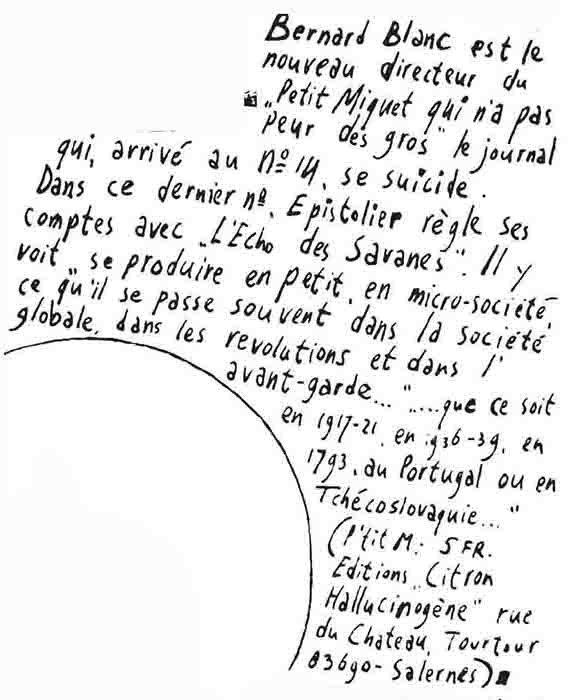 Bernard Blanc est le
nouveau directeur du
„Petit Miquet qui n'a pas
peur des gros" le journal
qui, arrivé au nº 14, se suicide.
Dans ce dernier nº, Epistolier règle ses
comptes avec „L'Echo des Savanes". Il y
voit „se produire en petit, en micro-société,
ce qu'il se passe souvent dans la société
globale, dans les revolutions et dans l'
avant-garde..." "....que ce soit
en 1917-21, en 1936-39, en
1793, au Portugal ou en
Tchécoslovaquie..."
(P'tit M.: 5 FR.
Editions „Citron
Hallucinogène" rue
du Chateau, Tourtour
83690-Salernes)